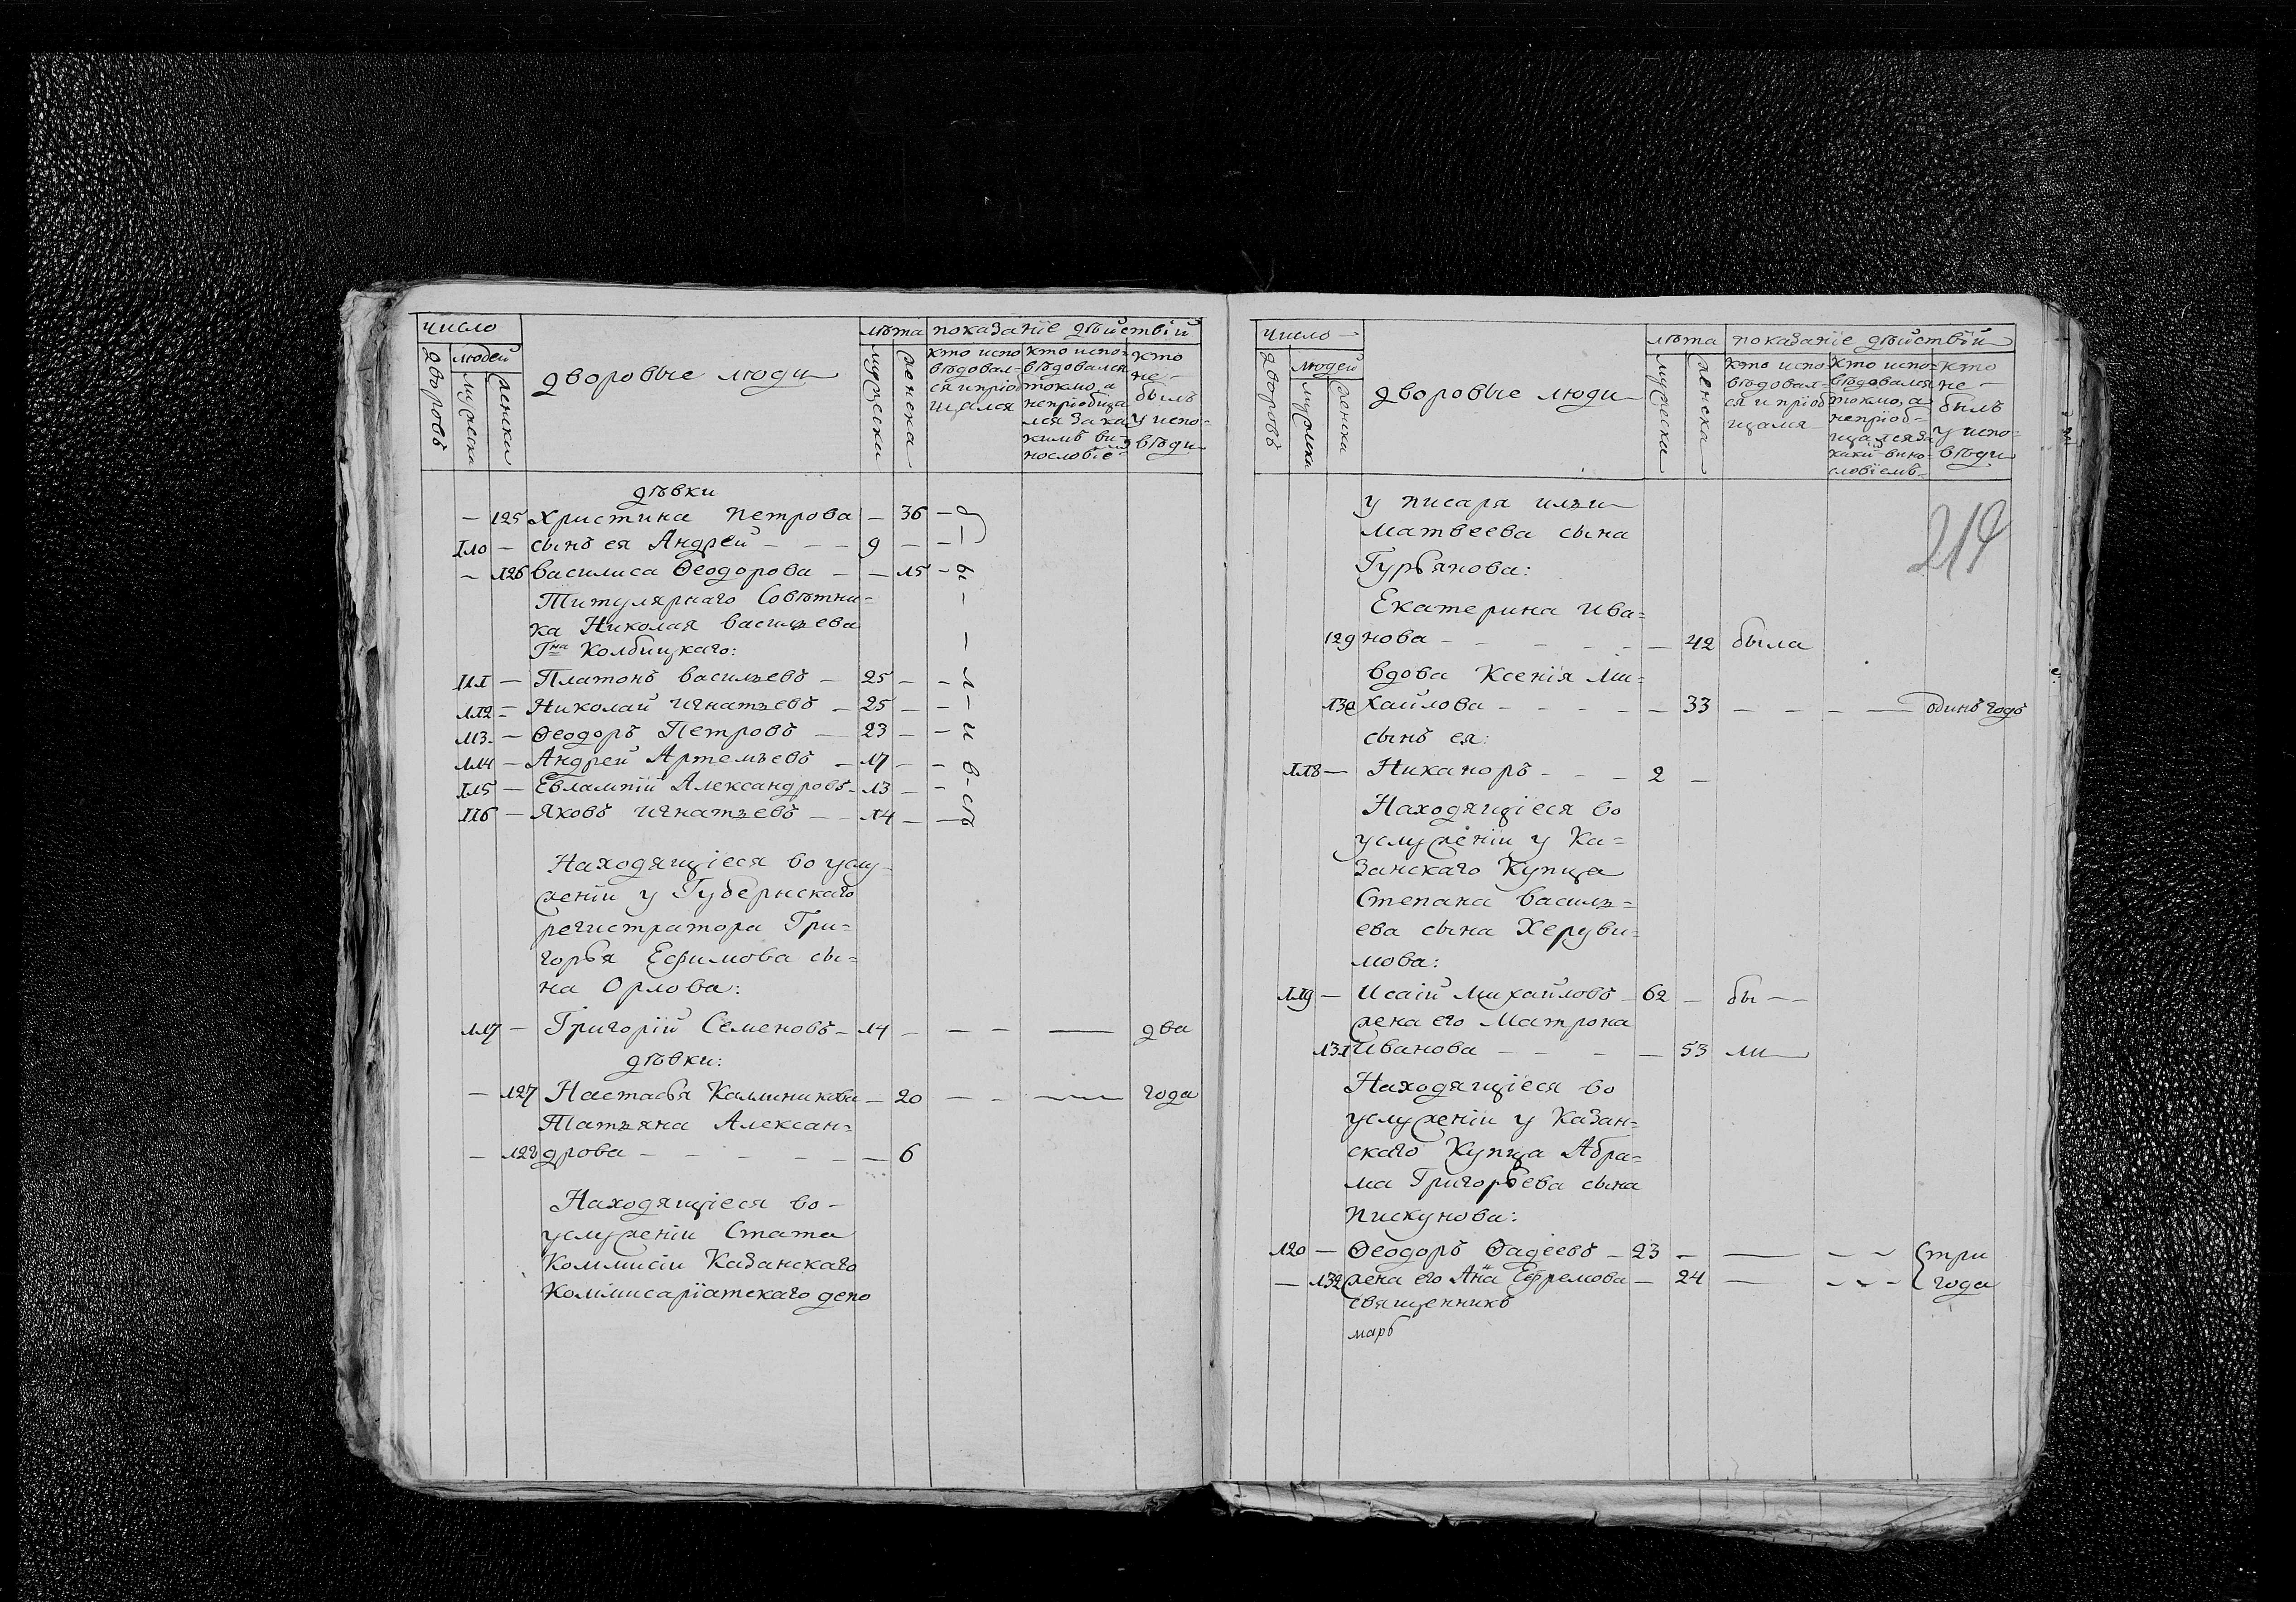 число
дворовъ
людей
мужеска
женска
дворовые люди
лѣта
мужеска
женска
показанїе дѣйствїй
кто испо
вѣдовал-
ся и прїоб
щался
кто испо-
вѣдовался
токмо, а
непрїобща
лся за ка
кимъ ви-
нословїе
мъ
кто
не-
былъ
у испо-
вѣди
дѣвки
— 125 Христина Петрова — 36 —
110 — сынъ ея Андрей — — — 9 — —
— 126 Василиса Ѳеодорова — — 15 — бы
Титулярнаго Совѣтни=
ка Николая Васильева
Гна Колбицкаго:
111 — Платонъ Васильевъ — 25 — — л
112 — Николай Игнатьевъ — 25 — —
113 — Ѳеодоръ Петровъ — 23 — — и
114 — Андрей Артемьевъ — 17 — —
115 — Евлампїй Александровъ — 13 — —
116 — Яковъ Игнатьевъ — — 14 — —
Находящїеся во услу-
женїи у Губернскаго
регистратора Гри=
горья Ефимова сы=
на Орлова:
117 — Григорїй Семеновъ — 14 — — — — два
дѣвки:
— 127 Настасья Калиникова — 20 — — — года
Татьяна Алексан=
— 128 дрова — — — — — — 6
Находящїеся во-
услуженїи Стата
Коммисїи Казанскаго
Коммисарїатскаго депо
число —
дворовъ
людей
мужеска
женска
дворовые люди
лѣта
мужеска
женска
показанїе дѣйствїй
кто испо-
вѣдовал-
ся и прїоб
щался
кто испо-
вѣдовался
токмо, а
непрїоб-
щался за
какимъ вино-
словїемъ
кто
не-
былъ
у испо=
вѣди
219
у писаря Ильи
Матвеева сына
Гурьянова:
Екатерина Ива=
129 нова — — — — — — 42 была
вдова Ксенїя Ми=
130 хайлова — — — — — 33 — — — — одинъ годъ
сынъ ея:
118 — Никаноръ — — — 2 —
Находящїеся во
услуженїи у Ка=
занскаго Купца
Степана Василь=
ева сына Херуви=
мова:
119 — Исаїй Михайловъ — 62 — бы — —
жена его Матрона
131 Иванова — — — — 53 ли —
Находящїеся во
услуженїи у Казан=
скаго Купца Абра=
ма Григорьева сына
Пискунова:
120 — Ѳеодоръ Ѳадеевъ — 23 — — — — три
— 132 жена его Анна Ефремова — 24 — — — — года
священникъ
марѳ